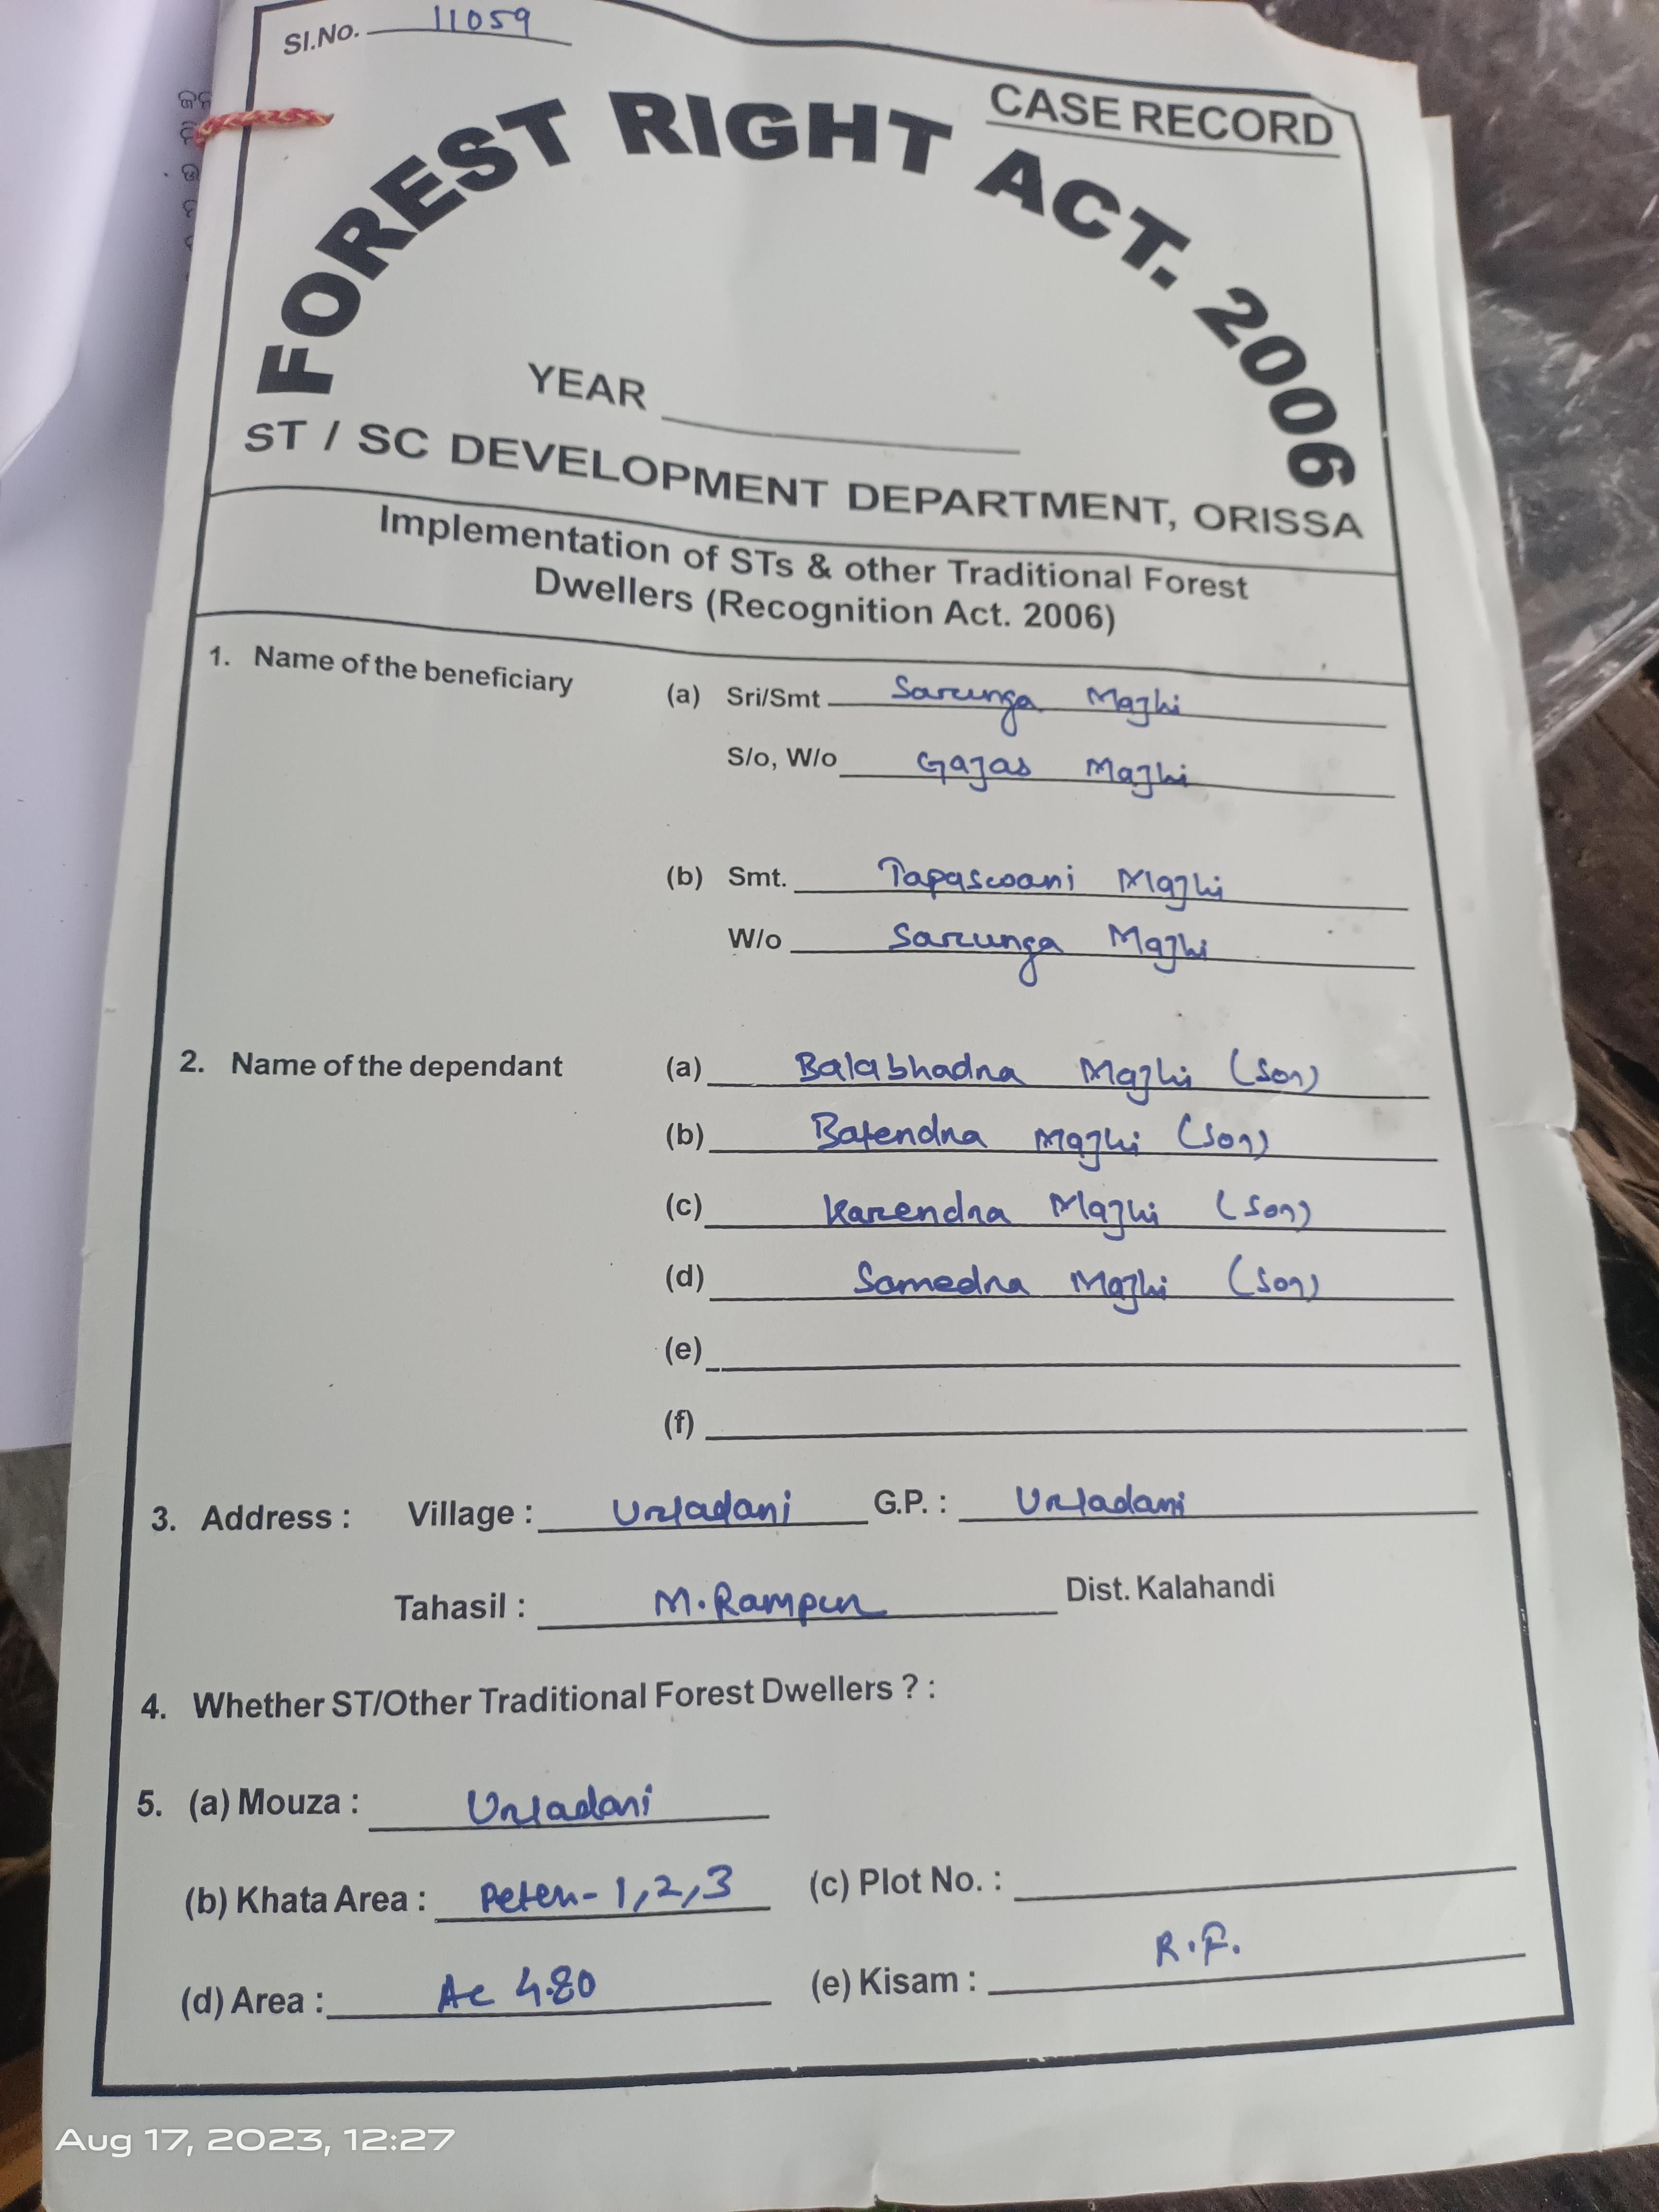 Sl.No. 11059
CASE RECORD
FOREST RIGHT ACT. 2006
YEAR
ST / SC DEVELOPMENT DEPARTMENT, ORISSA
Implementation of STs & other Traditional Forest
Dwellers (Recognition Act. 2006)
1. Name of the beneficiary (a) Sri/Smt Sarunga Majhi
S/o, W/o Gajas Majhi
(b) Smt. Tapaswani Majhi
W/o Sarunga Majhi
2. Name of the dependant (a) Balabhadra Majhi (Son)
(b) Batendra Majhi (Son)
(c) Karendra Majhi (Son)
(d) Samedra Majhi (Son)
(e)
(f)
3. Address : Village : Urladani G.P. : Urladani
Tahasil : M.Rampur Dist. Kalahandi
4. Whether ST/Other Traditional Forest Dwellers ? :
5. (a) Mouza : Urladani
(b) Khata Area : - 1,2,3 (c) Plot No. :
(d) Area : Ac 4.80 (e) Kisam : R.F.
Aug 17, 2023, 12:27